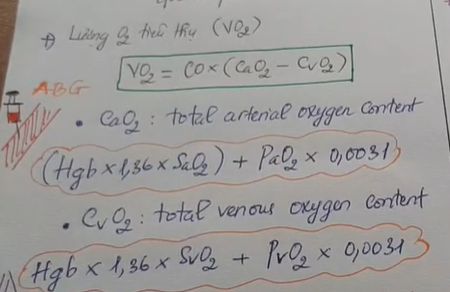 Lượng O₂ tiêu thụ (VO₂)
VO₂ = CO × (CaO₂ – CvO₂)
ABG
• CaO₂ : total arterial oxygen content
(Hgb × 1,36 × SaO₂) + PaO₂ × 0,0031
• CvO₂ : total venous oxygen content
Hgb × 1,36 × SvO₂ + PvO₂ × 0,0031